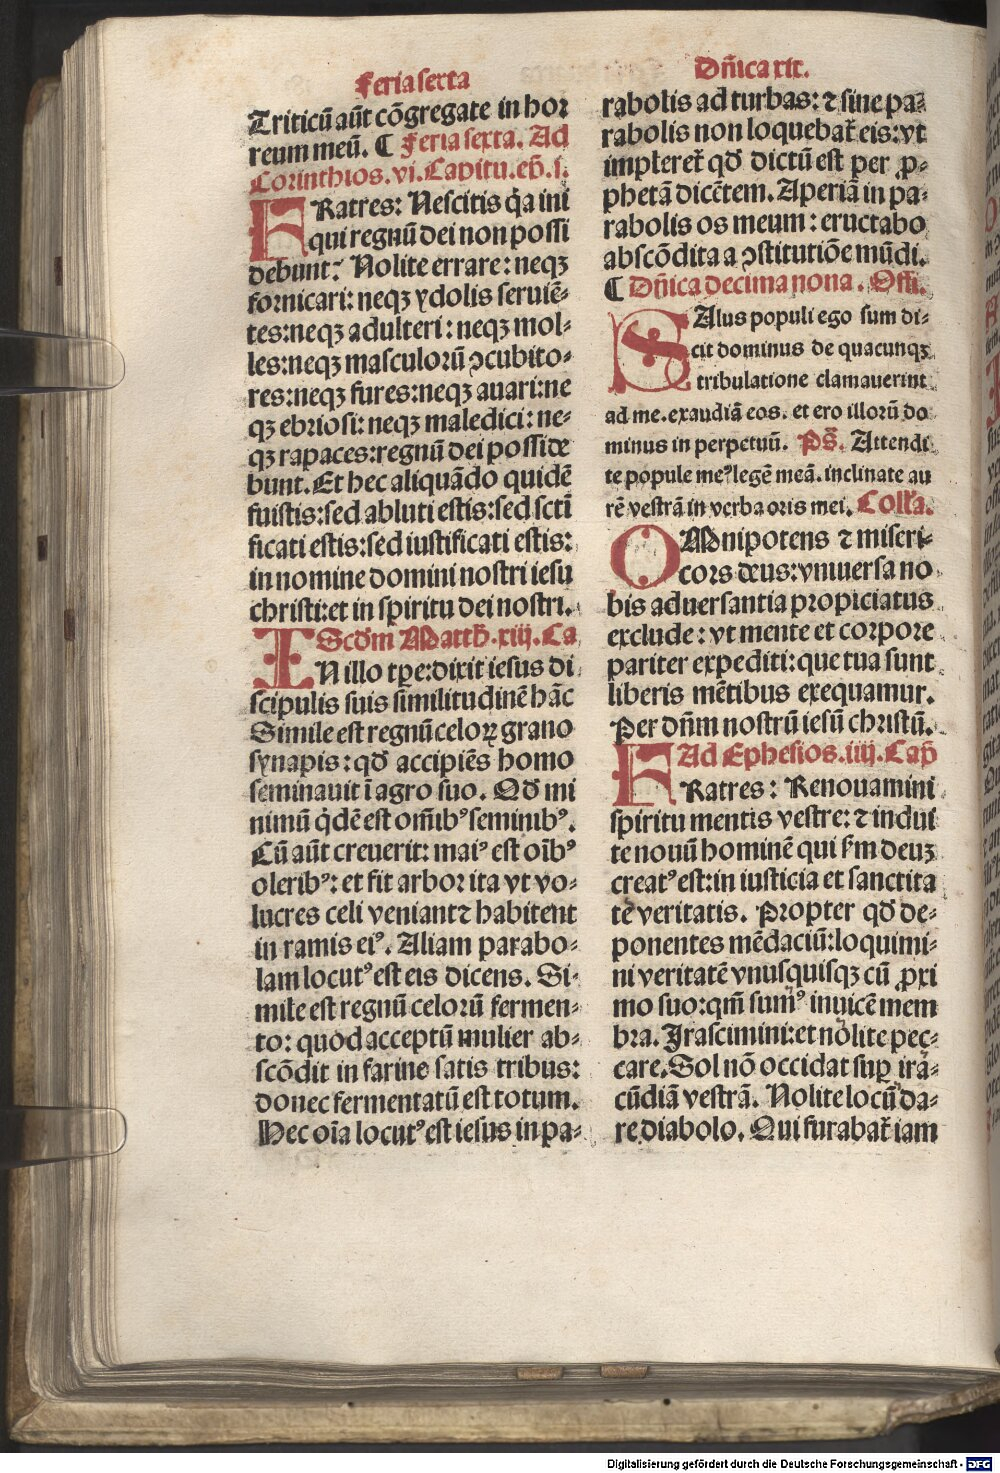 Feria sexta
Triticū aūt cōgregate in hor
reum meū. ¶ Feria sexta. Ad
Corinthios. vi. Capitu. ep̄. s.
FRatres: Nescitis q̇a ini
qui regnū dei non possi
debunt? Nolite errare: neqꝫ
fornicari: neqꝫ ydolis seruiē-
tes: neqꝫ adulteri: neqꝫ mol-
les: neqꝫ masculorū ꝯcubito-
res: neqꝫ fures: neqꝫ auari: ne
qꝫ ebriosi: neqꝫ maledici: ne-
qꝫ rapaces: regnū dei posside
bunt. Et hec aliquādo quidē
fuistis: sed abluti estis: sed scti
ficati estis: sed iustificati estis:
in nomine domini nostri iesu
christi: et in spiritu dei nostri.
Scd̄m Matth̄. xiij. Ca
IN illo tꝑe: dixit iesus di
scipulis suis similitudinē hāc
Simile est regnū celoꝝ grano
synapis: qd̄ accipiēs homo
seminauit ī agro suo. Qd̄ mi
nimū q̇dē est om̄ibꝰ seminibꝰ.
Cū aūt creuerit: maiꝰ est oībꝰ
oleribꝰ: et fit arbor ita vt vo-
lucres celi veniant ⁊ habitent
in ramis eiꝰ. Aliam parabo-
lam locutꝰ est eis dicens. Si-
mile est regnū celorū fermen-
to: quod acceptū mulier ab-
scōdit in farine satis tribus:
donec fermentatū est totum.
Hec oīa locutꝰ est iesus in pa-
Dn̄ica xix.
rabolis ad turbas: ⁊ sine pa-
rabolis non loquebat᷑ eis: vt
impleret᷑ qd̄ dictū est per ꝓ-
phetā dicētem. Aperiā in pa-
rabolis os meum: eructabo
abscōdita a ꝯstitutiōe mūdi.
¶ Dn̄ica decima nona. Offi.
SAlus populi ego sum di-
cit dominus de quacunqꝫ
tribulatione clamauerint
ad me. exaudiā eos. et ero illorū do
minus in perpetuū. Ps̄. Attendi
te popule meꝰ legē meā. inclinate au
rē vestrā in verba oris mei. Coll̄a.
OMnipotens ⁊ miseri-
cors deus: vniuersa no
bis aduersantia propiciatus
exclude: vt mente et corpore
pariter expediti: que tua sunt
liberis mētibus exequamur.
Per dn̄m nostrū iesū christū.
Ad Ephesios. iiij. Cap̄
FRatres: Renouamini
spiritu mentis vestre: ⁊ indui
te nouū hominē qui ẜm deuꝫ
creatꝰ est: in iusticia et sanctita
te veritatis. Propter qd̄ de-
ponentes mēdaciū: loquimi-
ni veritatē vnusquisqꝫ cū ꝓxi
mo suo: qm̄ sumꝰ inuicē mem
bra. Irascimini: et nolite pec-
care. Sol nō occidat suꝑ irā-
cūdiā vestrā. Nolite locū da-
re diabolo. Qui furabat᷑ iam
Digitalisierung gefördert durch die Deutsche Forschungsgemeinschaft - DFG